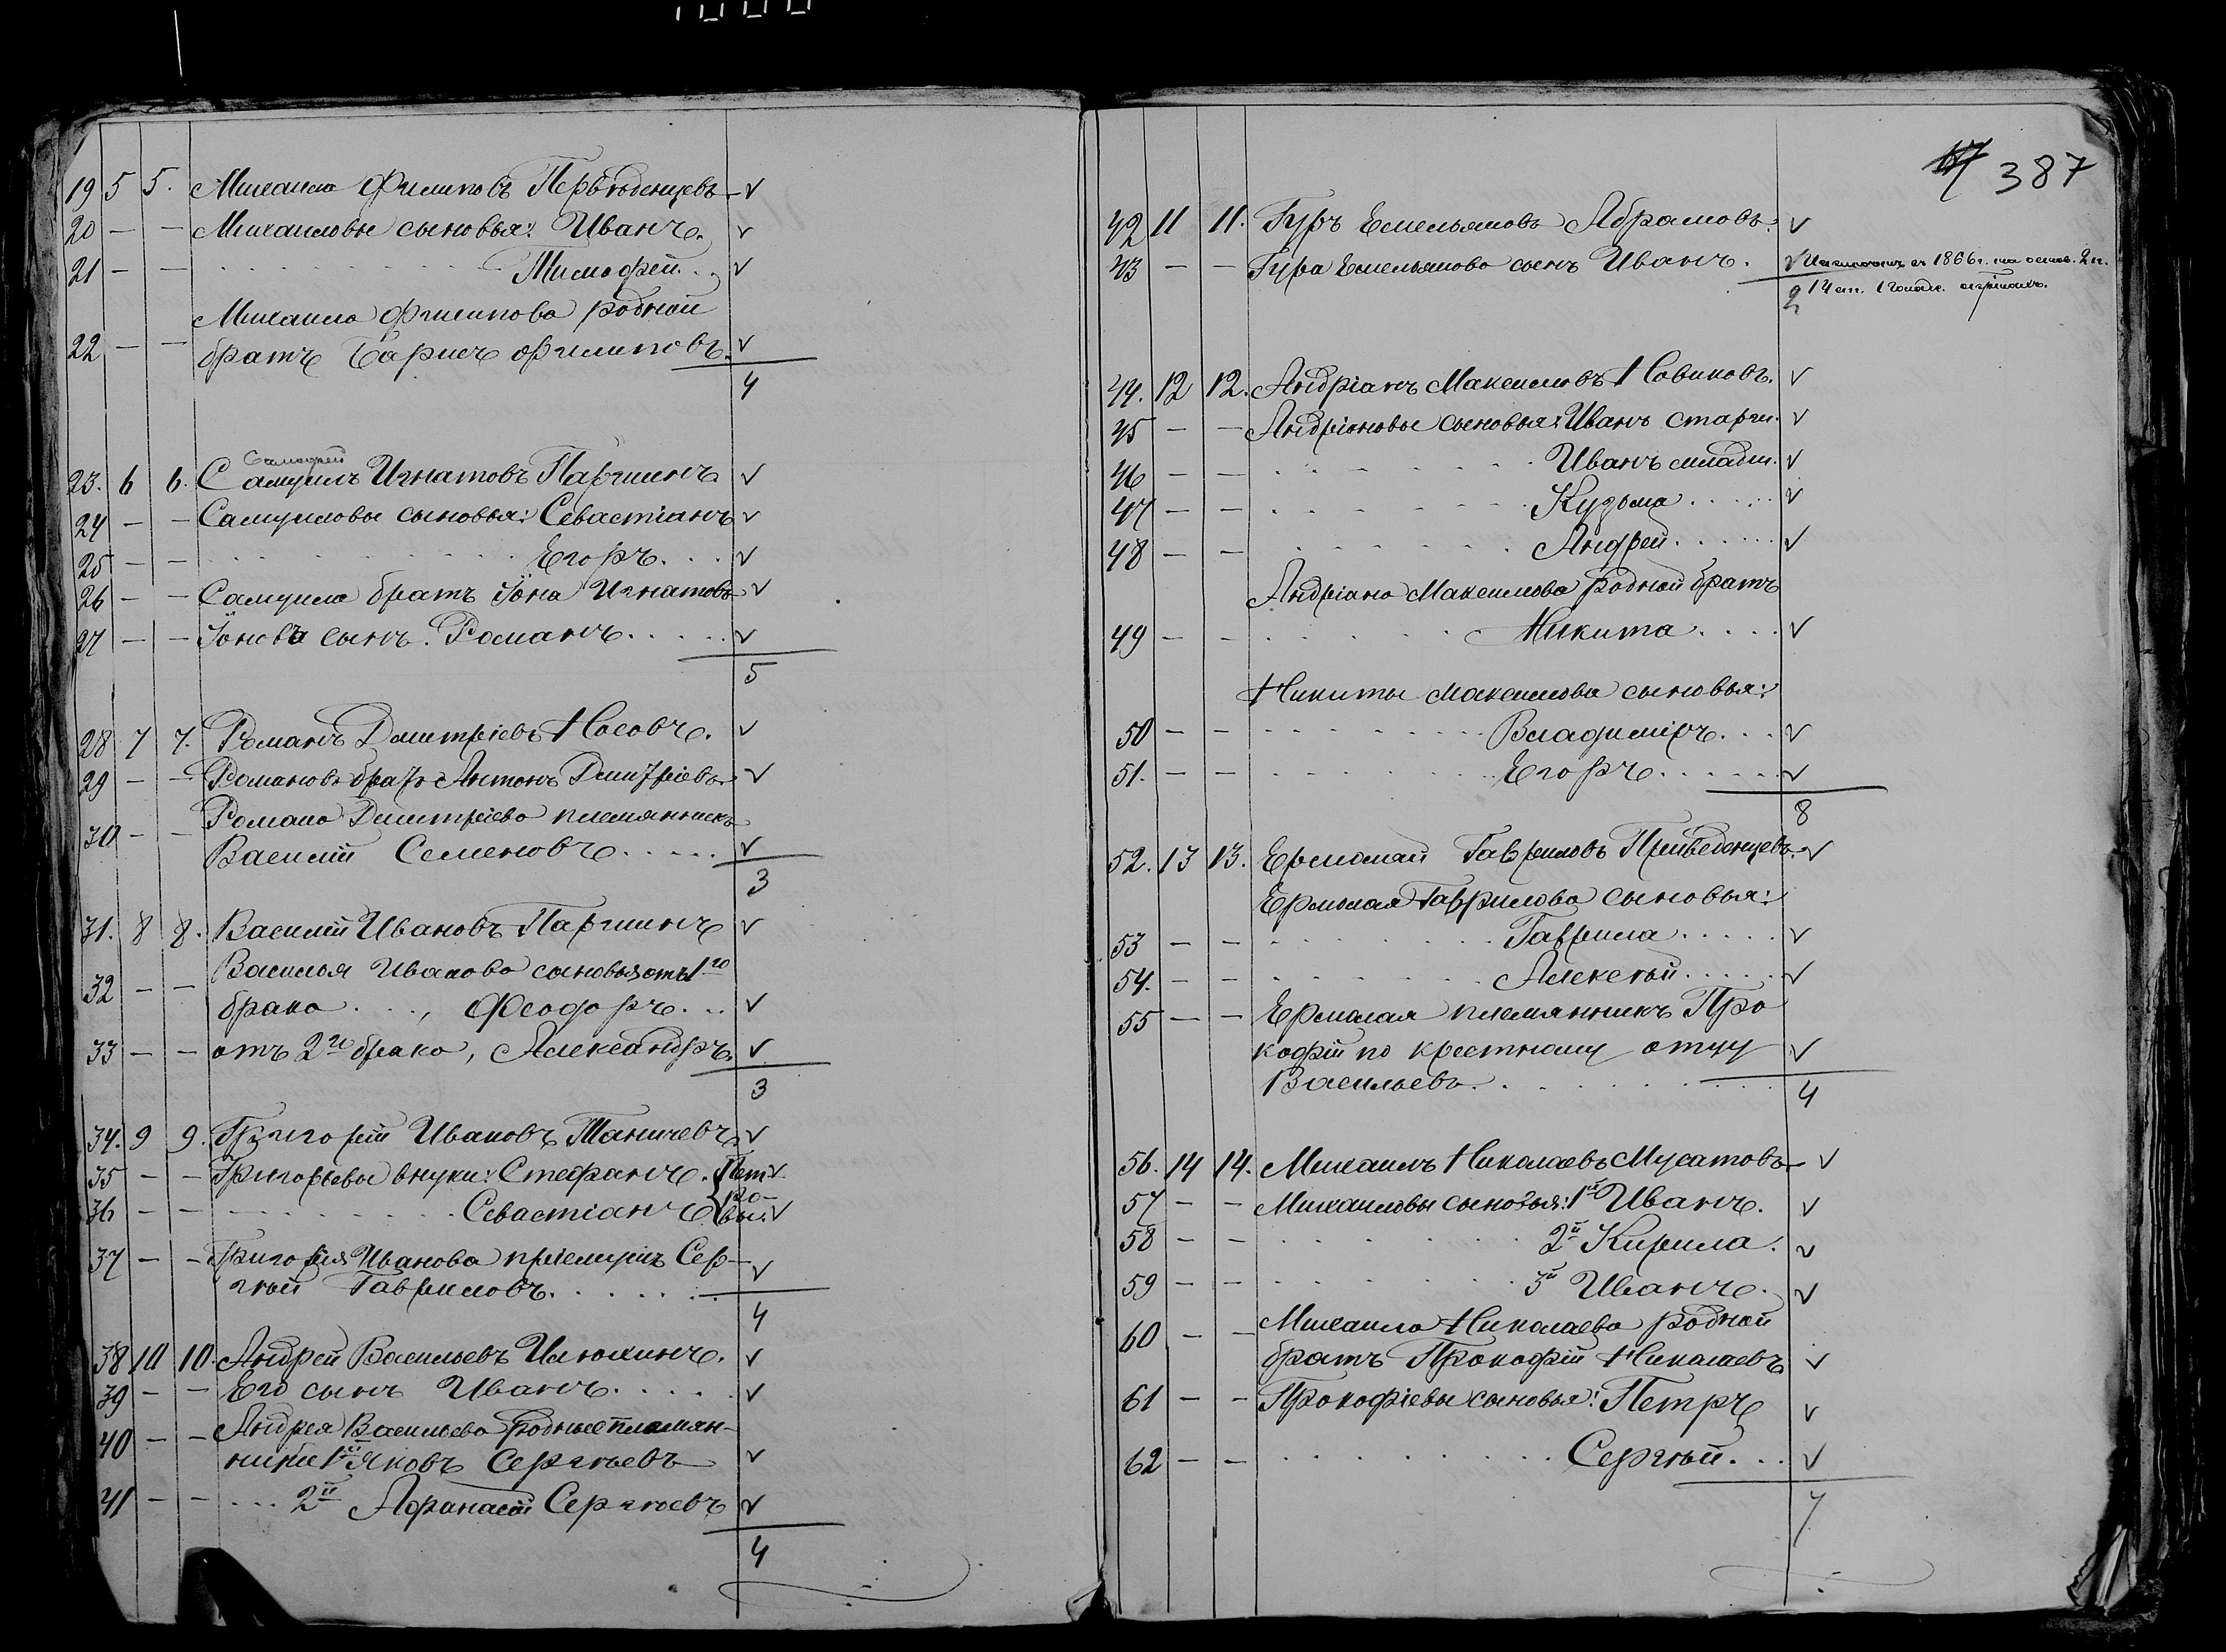 19 5 5. Михаила Филиповъ Первѣденцевъ
20 — — Михаиловы сыновья: Иванъ.
21 — — Тимофей..
Михаила Филипова родной
22 — — братъ Борисъ Филиповъ.
4
Самофей
23. 6 6. Самуилъ Игнатовъ Паршинъ
24 — — Самуиловы сыновья: Севастіанъ
25 — — Егоръ....
26 — — Самуила братъ Іона Игнатовъ
27 — — Іоновъ сынъ. Романъ.....
5
28 7 7. Романъ Дмитріевъ Носовъ.
29 — — Романовъ братъ Антонъ Дмитріевъ
30 — — Романа Дмитріева племянникъ
Василій Семеновъ.....
3
31. 8 8. Василій Ивановъ Паршинъ
32 — — Василья Иванова сыновья отъ 1го
брака..., Феодоръ...
33 — — отъ 2го брака, Александръ.
3
34. 9 9. Григорій Ивановъ Таничевъ
35 — — Григорьевы внуки: Стефанъ. Пет-
36 — — Севастіанъ ро-
вы.
37 — — Григорія Иванова пріемышъ Сер-
гѣй Гавриловъ.......
4
38 10 10. Андрей Васильевъ Илюхинъ.
39 — — Его сынъ Иванъ......
40 — — Андрея Васильева родные племян-
ники 1й Яковъ Сергѣевъ
41 — — ... 2й Афанасій Сергѣевъ
4
387
42 11 11. Гуръ Емельяновъ Абрамовъ.
43 — — Гура Емельянова сынъ Иванъ. 1866 г. на основ. 2 п.
2 14 ст.
44. 12 12. Андріанъ Максимовъ Новиковъ.
45 — — Андріановы сыновья: Иванъ старш.
46 — — Иванъ младш.
47 — — Кузьма.....
48 — — Андрей......
Андріана Максимова родной братъ
49 — — Никита....
Никиты Максимова сыновья:
50 — — Владиміръ...
51. — — Егоръ......
8
52. 13 13. Ермолай Гавриловъ Приведенцевъ
Ермолая Гаврилова сыновья:
53 — — Гаврила.....
54. — — Алексѣй.....
55 — — Ермолая племянникъ Про
кофій по крестному отцу
Васильевъ.........
4
56. 14 14. Михаилъ Николаевъ Мусатовъ
57 — — Михаиловы сыновья: 1й Иванъ.
58 — — 2й Кирила.
59 — — 3й Иванъ.
60 — — Михаила Николаева родной
братъ Прокофій Николаевъ
61 — — Прокофіевы сыновья: Петръ
62 — — Сергѣй...
7